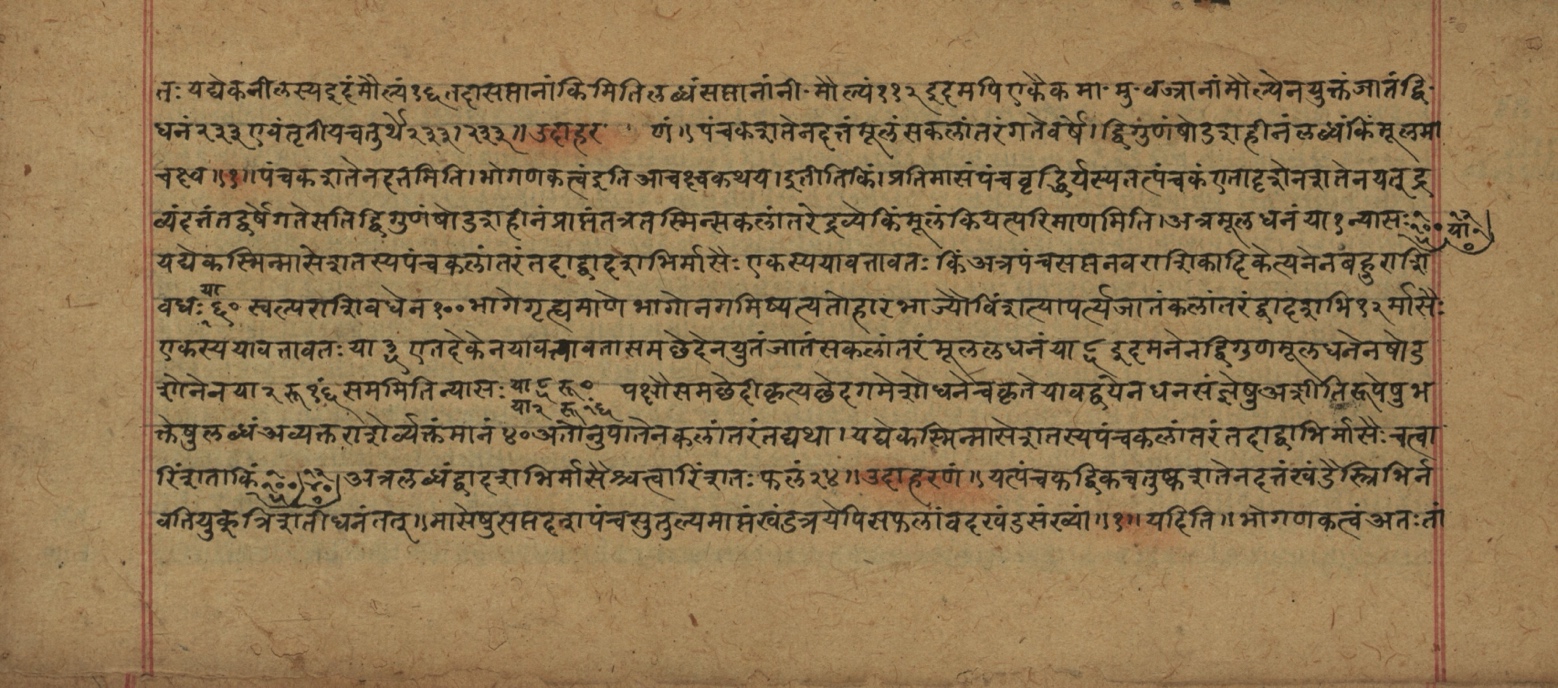 तः यद्येकनीलस्य इदं मौल्यं १६ तदा सप्तानां किमिति लब्धं सप्तानां नी॰ मौल्यं ११२ इदमपि एकैक मा॰ मु॰ वज्रानां मौल्येन युक्तं जातं द्वि॰
धनं २३३ एवं तृतीयचतुर्थे २३३। २३३॥ उदाहर णं॥ पंचकशतेन दत्तं मूलं सकलांतरं गते वर्षे। द्विगुणं षोडशहीनं लब्धं किं मूलमा
चक्ष्व॥१॥ पंचकशतेन दत्तमिति। भो गणक त्वं इति आचक्ष्व कथय। इतीति किं। प्रतिमासं पंच वृद्धिर्यस्य तत्पंचकं एतादृशेन शतेन यत् द्र
व्यं दत्तं तद्वर्षे गते सति द्विगुणं षोडशहीनं प्राप्तं तत्र तस्मिन्सकलांतरे द्रव्ये किं मूलं कियत्परिमाणमिति। अत्र मूलधनं या १ न्यासः
यद्येकस्मिन्मासे शतस्य पंच कलांतरं तदा द्वादशभिर्मासैः एकस्य यावत्तावतः किं अत्र पंचसप्तनवराशिकादिकेत्यनेन बहुराशि
वधः या ६० स्वल्पराशिवधेन १०० भागे गृह्यमाणे भागो न गमिष्यत्यतो हारभाज्यौ विंशत्यापवर्त्य जातं कलांतरं द्वादशभि १२ र्मासैः
एकस्य यावत्तावतः या ३ एतदेकेन यावत्तावता समछेदेन युतं जातं सकलांतरं मूललधनं या ८ इदमनेन द्विगुणमूलधनेन षोड
शोनेन या २ रू १६ं सममिति न्यासः या ८ रू ० या २ रू १६ं पक्षौ समछेदीकृत्य छेदगमे शोधने च कृते यावद्द्वयेन धनसंज्ञेषु अशीतिरूपेषु भ
क्तेषु लब्धं अव्यक्तराशेर्व्यक्तं मानं ४० अतोनुपातेन कलांतरं तद्यथा। यद्येकस्मिन्मासे शतस्य पंच कलांतरं तदा द्वाभिर्मासैः चत्वा
रिंशता किं अत्र लब्धं द्वादशभिर्मासैश्चत्वारिंशतः फलं २४॥ उदाहरणं॥ यत्पंचकद्विकचतुष्कशतेन दत्तं खंडैस्त्रिभिर्न
वतियुक् त्रिशती धनं तत्॥ मासेषु सप्तदशपंचसु तुल्यमाप्तं खंडत्रयेपि सफलां वद खंडसंख्यां॥१॥ यदिति॥ भो गणक त्वं अतः तां